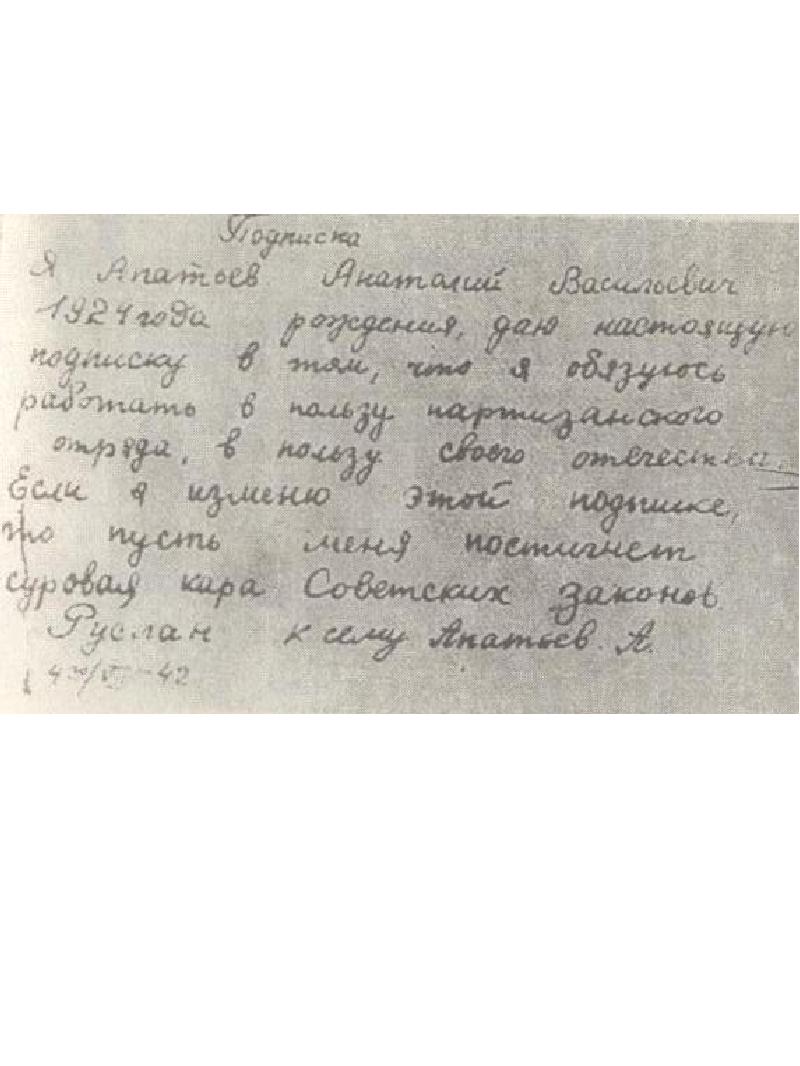 Подписка
Я Апатьев Анаталий Васильевич
1924 года рождения, даю настоящую
подписку в том, что я обязуюсь
работать в пользу партизанского
отряда, в пользу своего отечества.
Если я изменю этой подпишке,
то пусть меня постигнет
суровая кара Советских законов
Руслан к сему Апатьев. А.
42